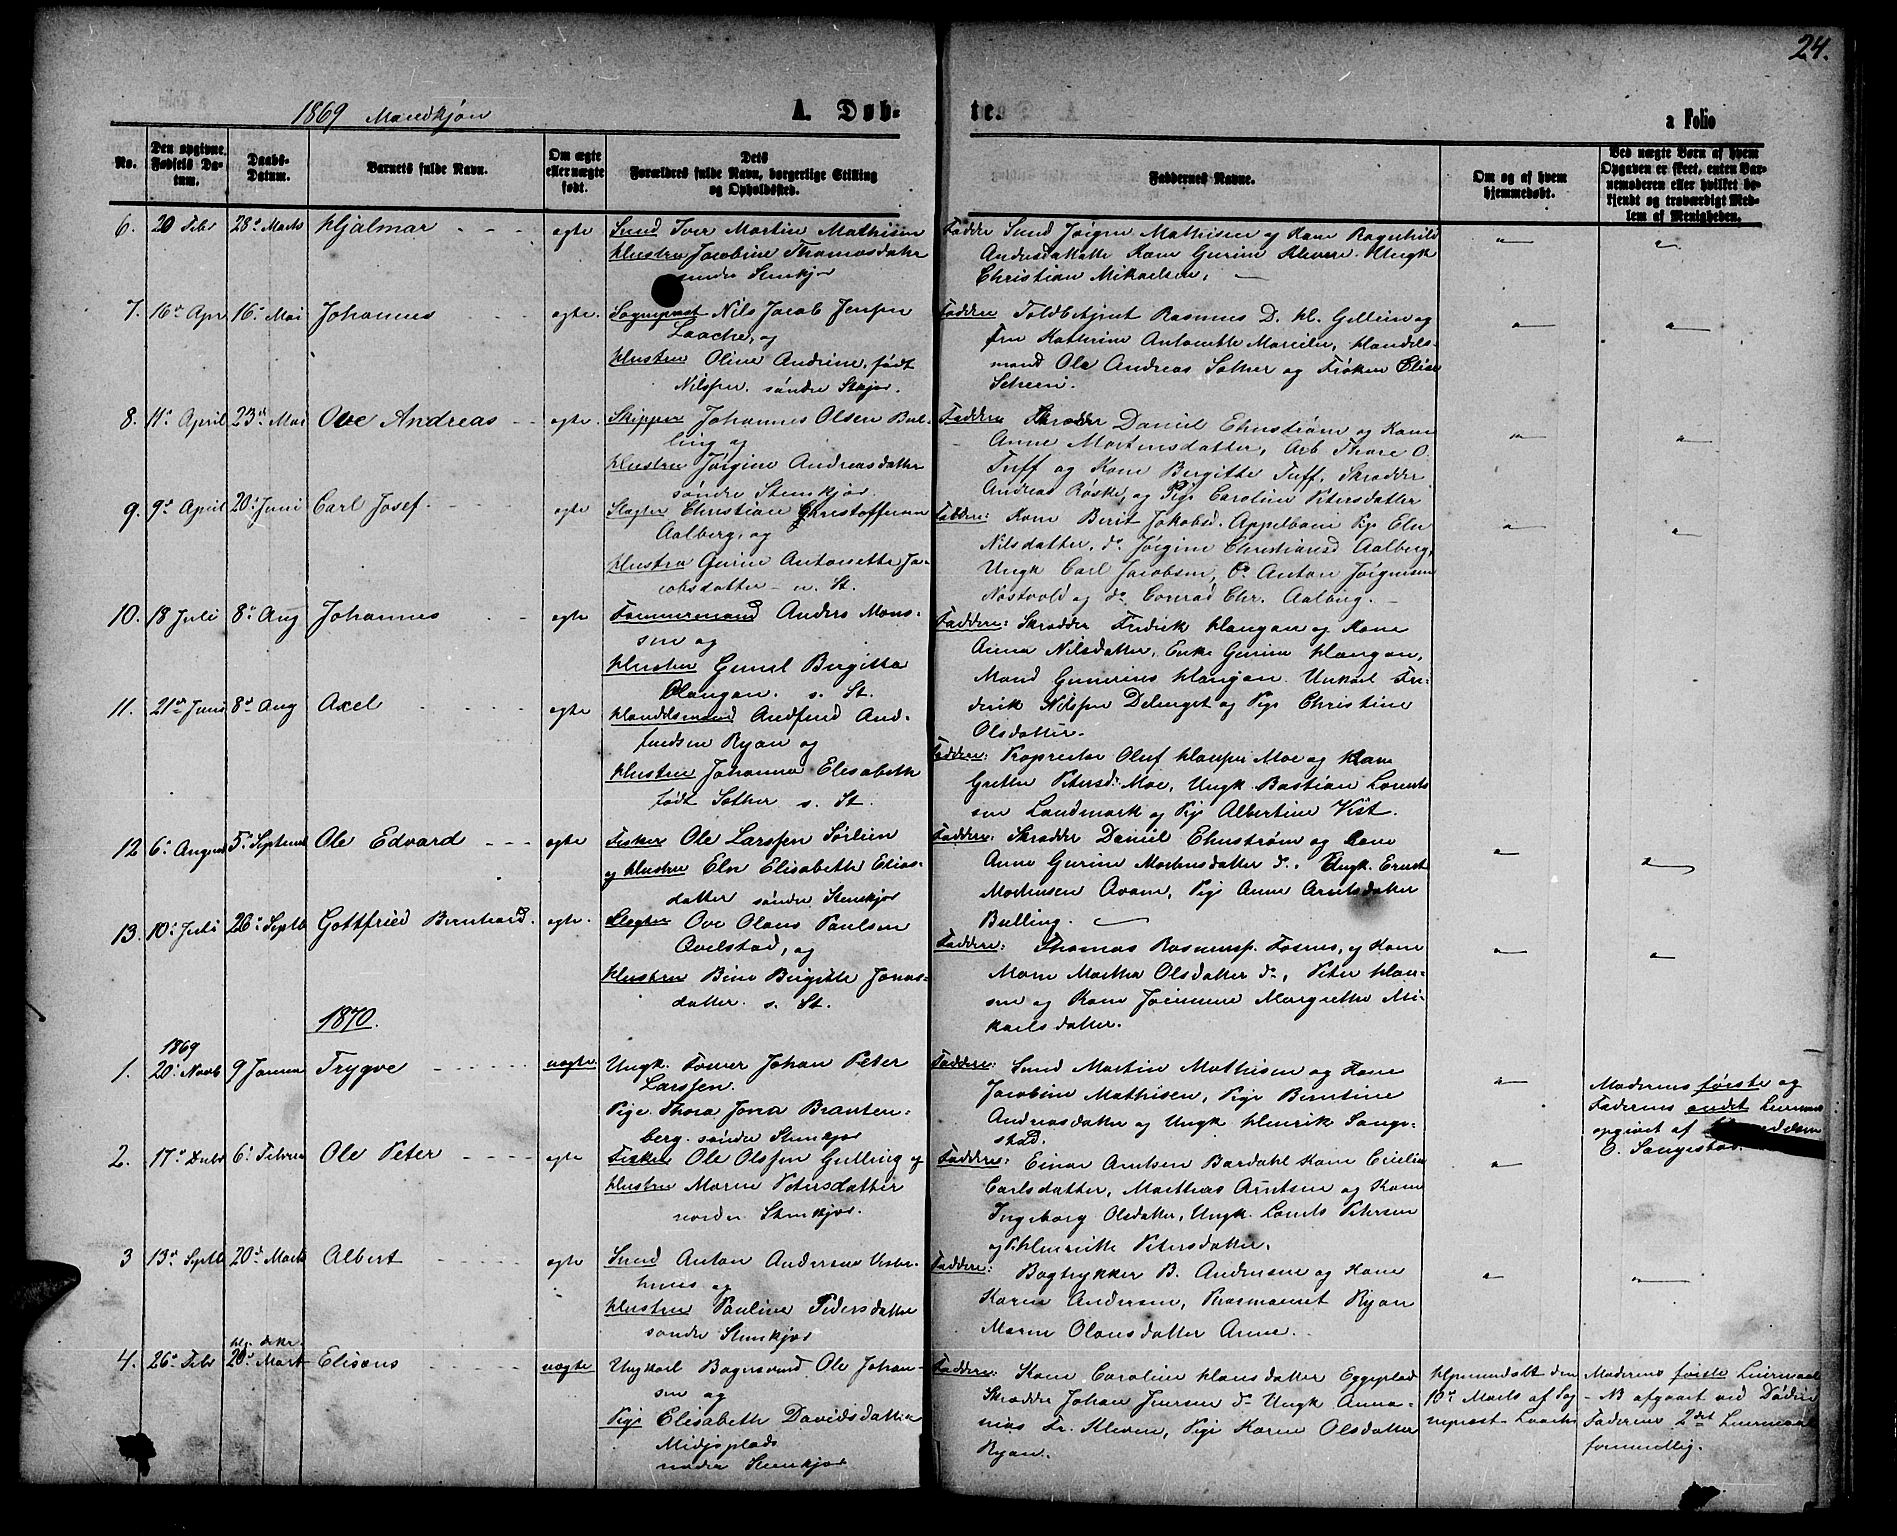 24.
1869 Mandkjøn
A. Døb-
te.
a Folio
No.
Den opgivne Fødsels Da-
tum.
Daabs-
Datum.
Barnets fulde Navn.
Om ægte
eller uægte
født.
Dets
Forældres fulde Navn, borgerlige Stilling
og Opholdssted.
Faddernes Navne.
Om og af hvem
hjemmedøbt.
Ved uægte Børn af hvem
Opgaven er skeet, enten Bar-
nemoderen eller hvilket be-
kjendt og troværdigt Med-
lem af Menigheden.
6. 20 Febr 28de Marts Hjalmar ægte Smed Iver Martin Mathisen
Hustru Jacobine Thomasdatter
søndre Stenkjær
Faddere Smed Jørgen Mathisen og Kone Ragnhild
Andersdatter Kone Gurine Kleven. Ungk
Christian Mikaelsen.
7. 16de Apr 16de Mai Johannes ægte. Sogneprest Nils Jacob Jensen
Laache, og
Hustru Oline Andrine, født
Nilssen. søndre Stkjær.
Faddere Toldbetjent Rasmus D. H. Gellein og
Fru Kathrine Antonette, Handels-
mand Ole Andreas Sother og Frøken Elise
Scheen.
8. 11te April 23de Mai Ove Andreas ægte. Skipper Johannes Olsen Bul-
ling og
Hustru Jørgine Andreasdatter
søndre Stenkjær.
Faddere Skrædder Daniel Ehnstrøm og Kone
Anne Mortensdatter, Arb Thore O.
Tuff og Kone Birgitte Tuff, Skrædder
Andreas Røske, og Pige Caroline Petersdatter
9. 9de April 20de Juni Carl Josef. ægte Slagter Christian Christoffersen
Aalberg, og
Hustru Gurine Antonette Ja-
cobsdatter - n. St.
Faddere: Kone Berit Jakobsd. Appelbom Pige Elen
Nilsdatter, do Jørgine Christiansd Aalberg,
Ungk Carl Jacobsen, do Anton Jørgensen
Nøstvold og do Conrad Chr. Aalberg.
10. 18 Juli 8de Aug Johannes ægte Tømmermand Anders Mons-
sen og
Hustru Gunel Birgitta
Hangan. s. St.
Faddere: Skrædder Fredrik Hangan og Kone
Anna Nilsdatter, Enke Gurine Hangan,
Mand Gunerius Hangan. Unkarl Fre-
derik Nilssen Delenget og Pige Christine
Olsdatter.
11. 21de Juni 8de Aug Axel ægte Handelsmand Andfind And-
findsen Ryan og
Hustru Johanna Elisabeth
født Sother s. St.
Faddere: Proprietær Oluf Hansen Moe og Kone
Grethe Petersd: Moe, Ungk Bastian Lorents
sen Landmark og Pige Albertine Vist.
12 6te August 5te Septemb Ole Edvard ægte Fisker Ole Larssen Sørlien
og Hustru Elen Elisabeth Elias-
datter søndre Stenkjær
Faddere: Skrædder Daniel Ehnstrøm og Kone
Anne Gurine Mortensdatter do, Ungk. Ernst
Mortensen Avam, Pige Anne Arntsdatter
Bulling.
13. 10de Juli 26de Septb Gottfried Bernhard. ægte. Slagter Ove Olaus Paulsen
Avelstad, og
Hustru Bine Birgitte Jonas-
datter. s. St.
Faddere: Thomas Rasmuss. Fosnes, og Kone
Maren Martha Olsdatter do, Peter Han-
sen og Kone Margrethe Mi-
kaelsdatter.
1870.
1869
1. 20de Novb 9 Januar Trygve uægte. Ungk. Johan Peter
Larssen.
Pige Thora Jona Branten-
berg. søndre Stenkjær
Faddere: Smed Martin Mathisen og Kone
Jacobine Mathisen, Pige Berntine
Andreasdatter og Ungk Henrik Sanges-
stad.
Moderens første og
Faderens andet Leiermaal
opgivet af
O. Sangestad.
2. 17de Decbr 6te Februar Ole Peter ægte Fisker Ole Olssen Gulling og
Hustru Maren Petersdatter
nordre Stenkjær.
Faddere: Einar Arntsen Bardahl Kone Cicilia
Carlsdatter, Mathias Arntsen og Kone
Ingeborg Olsdatter, Ungk. Lorents Petersen
og P. Henrikke Petersdatter.
3 13de Septb 20de Marts Albert ægte Smed Anton Andersen
og
Hustru Pauline Pedersdatter
søndre Stenkjær
Faddere: Bogtrykker B. Andersen og Kone
Karen Andersen, Ryan
Maren Olausdatter Anne.
4. 26de Febr 20de Mart Elisæus uægte Ungkarl Bagersvend Ole Johan-
sen og
Pige Elisabeth Davidsdatter
Midjsplads
nordre Stenkjær
Faddere: Kone Caroline Hansdatter Eggeplad
Skrædder Johan Jensen do Ungk Anna-
nias Fr. Kleven, Pige Karen Olsdatter
Ryan.
Hjemmedøbt den
10de Marts af Sog
neprest Laache
Moderens første Leiermaal
- NB afgaaet ved Døden
Faderens 2det Leiermaal
formentlig.